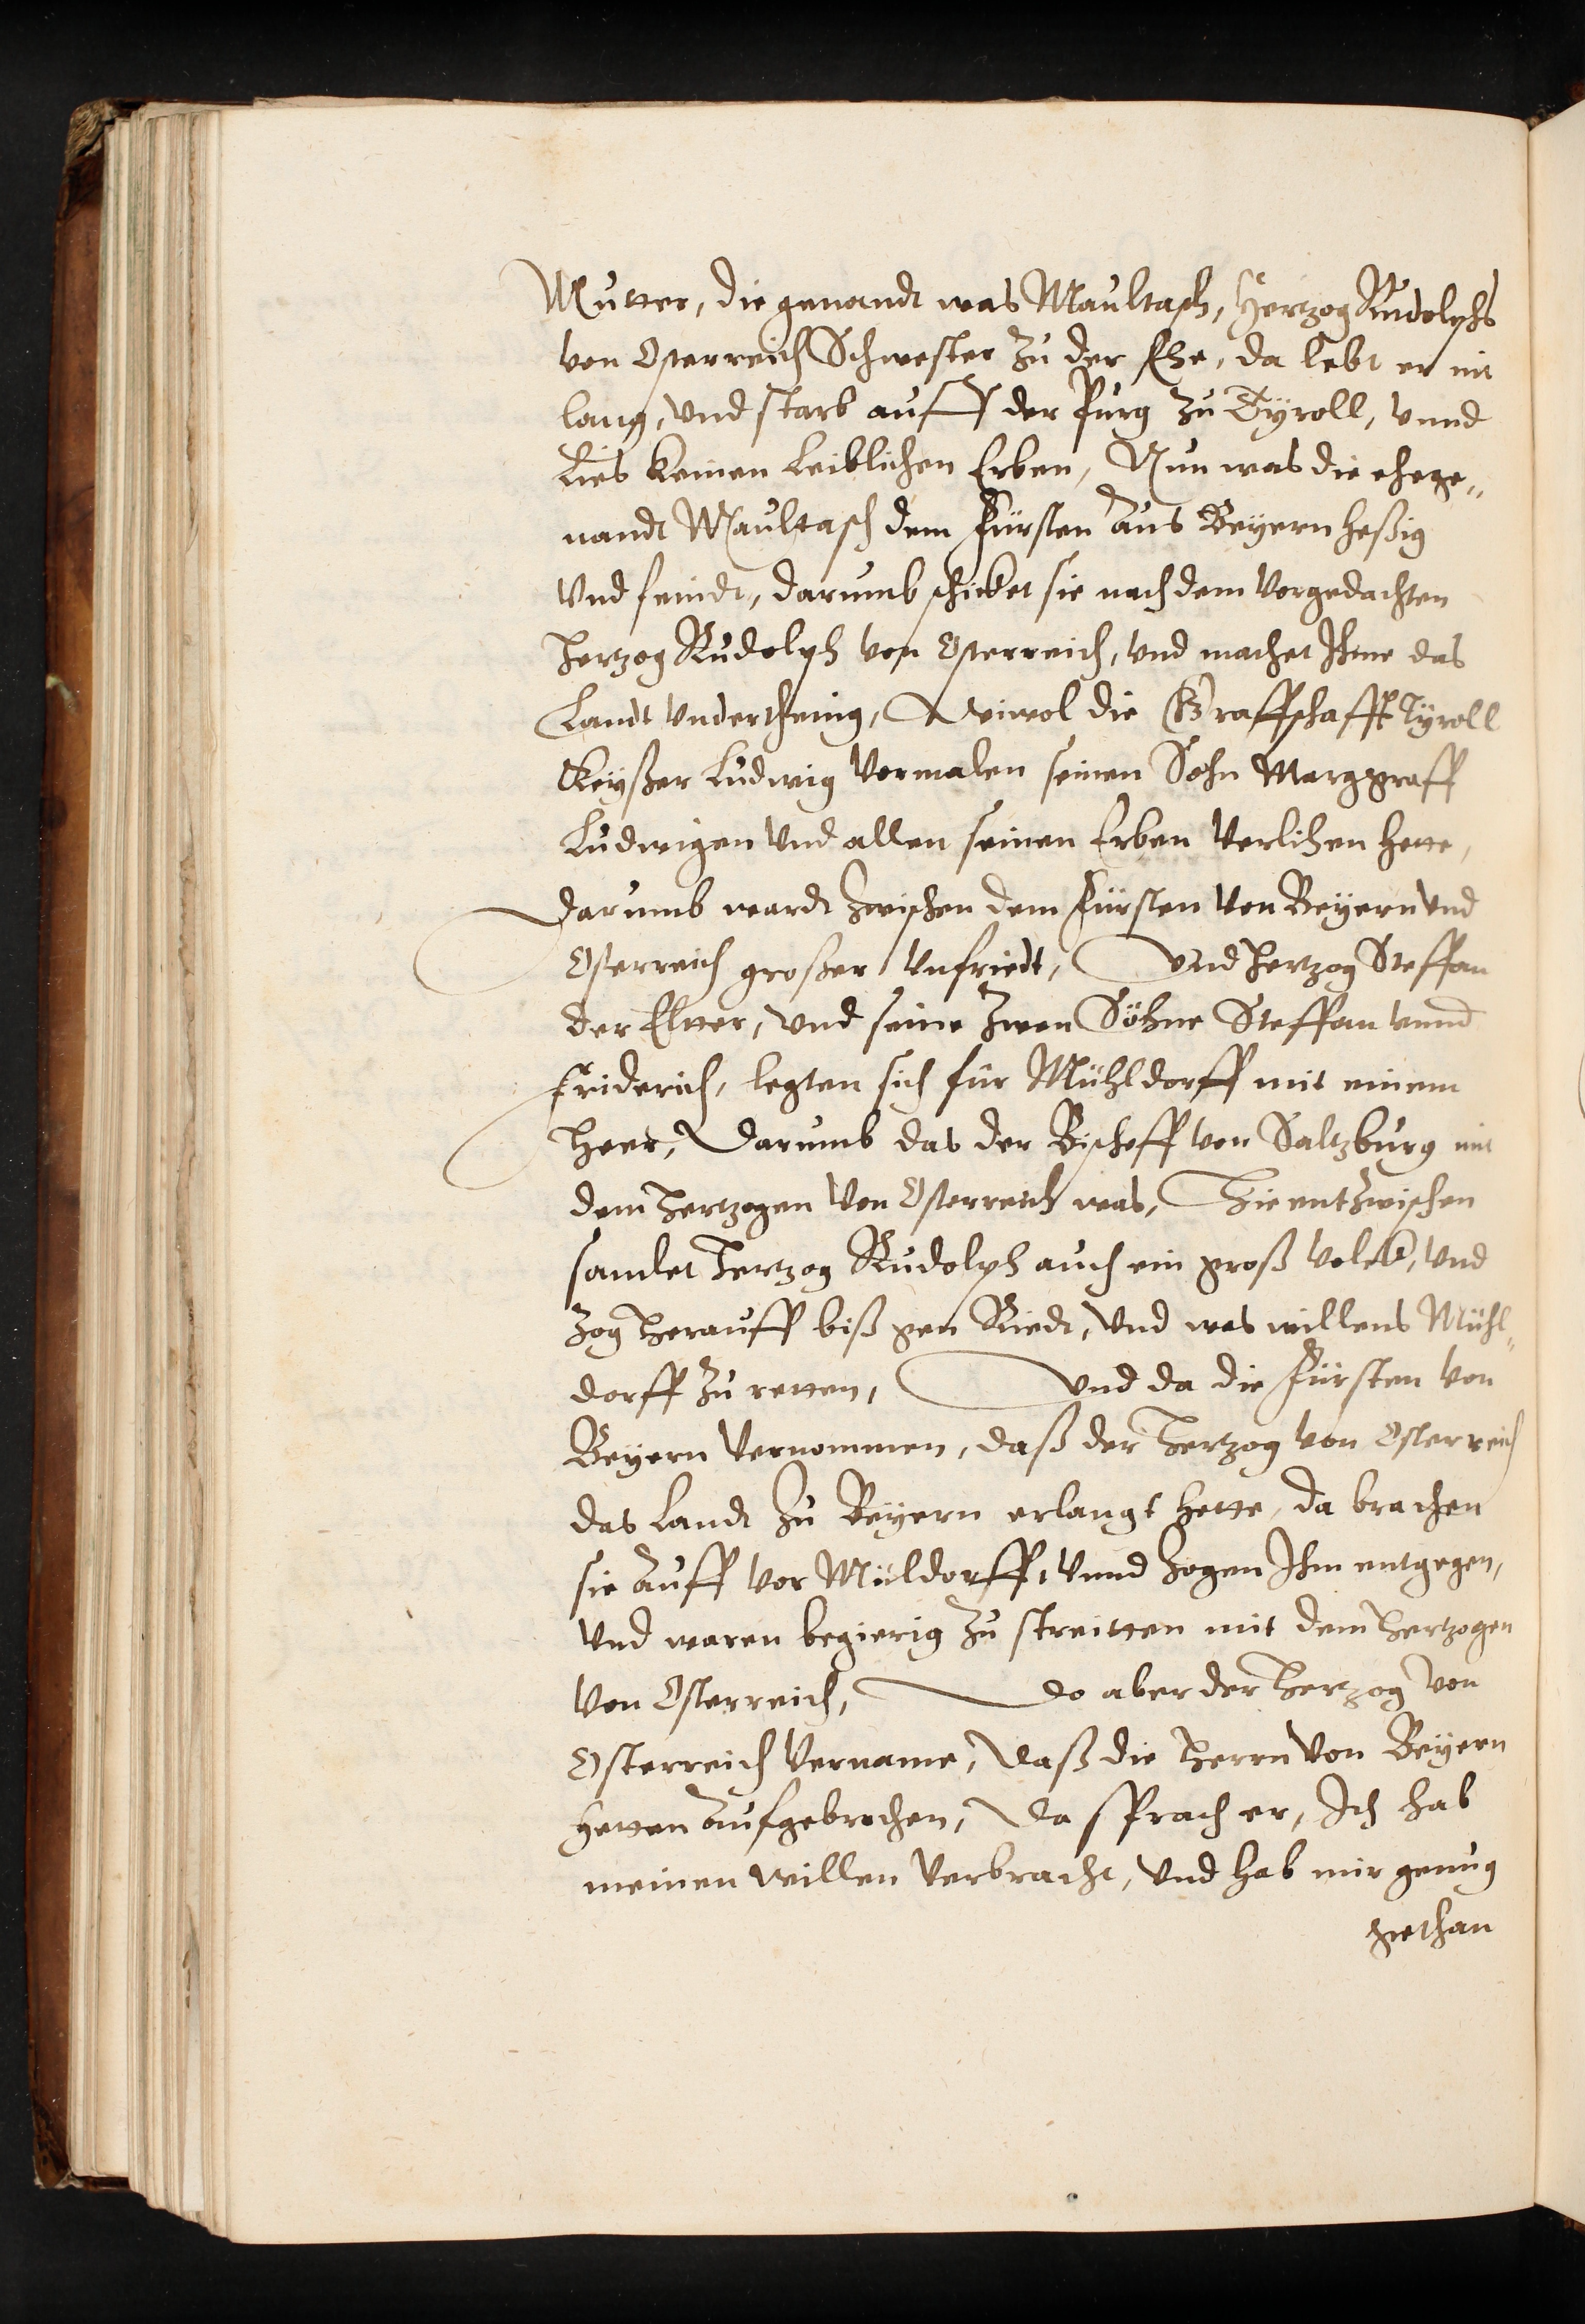 Mutter, die genandt was Maultasch, Hertzog Rudolphs
von Osterreich Schwester zu der Ehe, da lebt er nit
lang, und starb auff der Purg zu Tyroll, unnd
Lies keinen Leiblichen Erben, Nun was die ehege„
nandt Maultasch dem Fürsten aus Beyern heßig
Und feindt, darumb schicket sie nach dem Vorgedachten
Hertzog Rudolph von Osterreich, und machet Ihme das
Landt Underthenig, Wiewol die Graffschafft Tyroll
Keyßer Ludwig Vormalen seinen Sohn Marggraff
Ludwigen Und allen seinen Erben Verlihen hette,
Darumb wardt zwischen dem Fürsten Von Beyern Und
Osterreich großer Unfriedt, Und Hertzog Steffan
der Eltter, Und seine zwen Söhne Steffan unnd
Friderich, legten sich für Mühldorff mit einem
Heer, Darumb das der Bischoff von Saltzburg mit
dem Hertzogen Von Osterreich was, Hieentzwischen
samlet Hertzog Rudolph auch ein groß Volck, Und
Zog herauff biß gen Riedt, Und was willens Mühl„
dorff zu retten, Und da die Fürsten Von
Beyern Vernommen, daß der Hertzog Von Osterreich
das Landt zu Beyern erlangt hette, da brachen
sie auff vor Müldorff, Unnd zogen Ihm entgegen,
Und waren begierig zu streitten mit dem Hertzogen
Von Osterreich, Do aber der Hertzog Von
Osterreich Vername, Daß die Herrn Von Beyern
hetten aufgebrochen, Da sprach er, Ich hab
meinen Willen Verbracht, Und hab mir genug
gethan